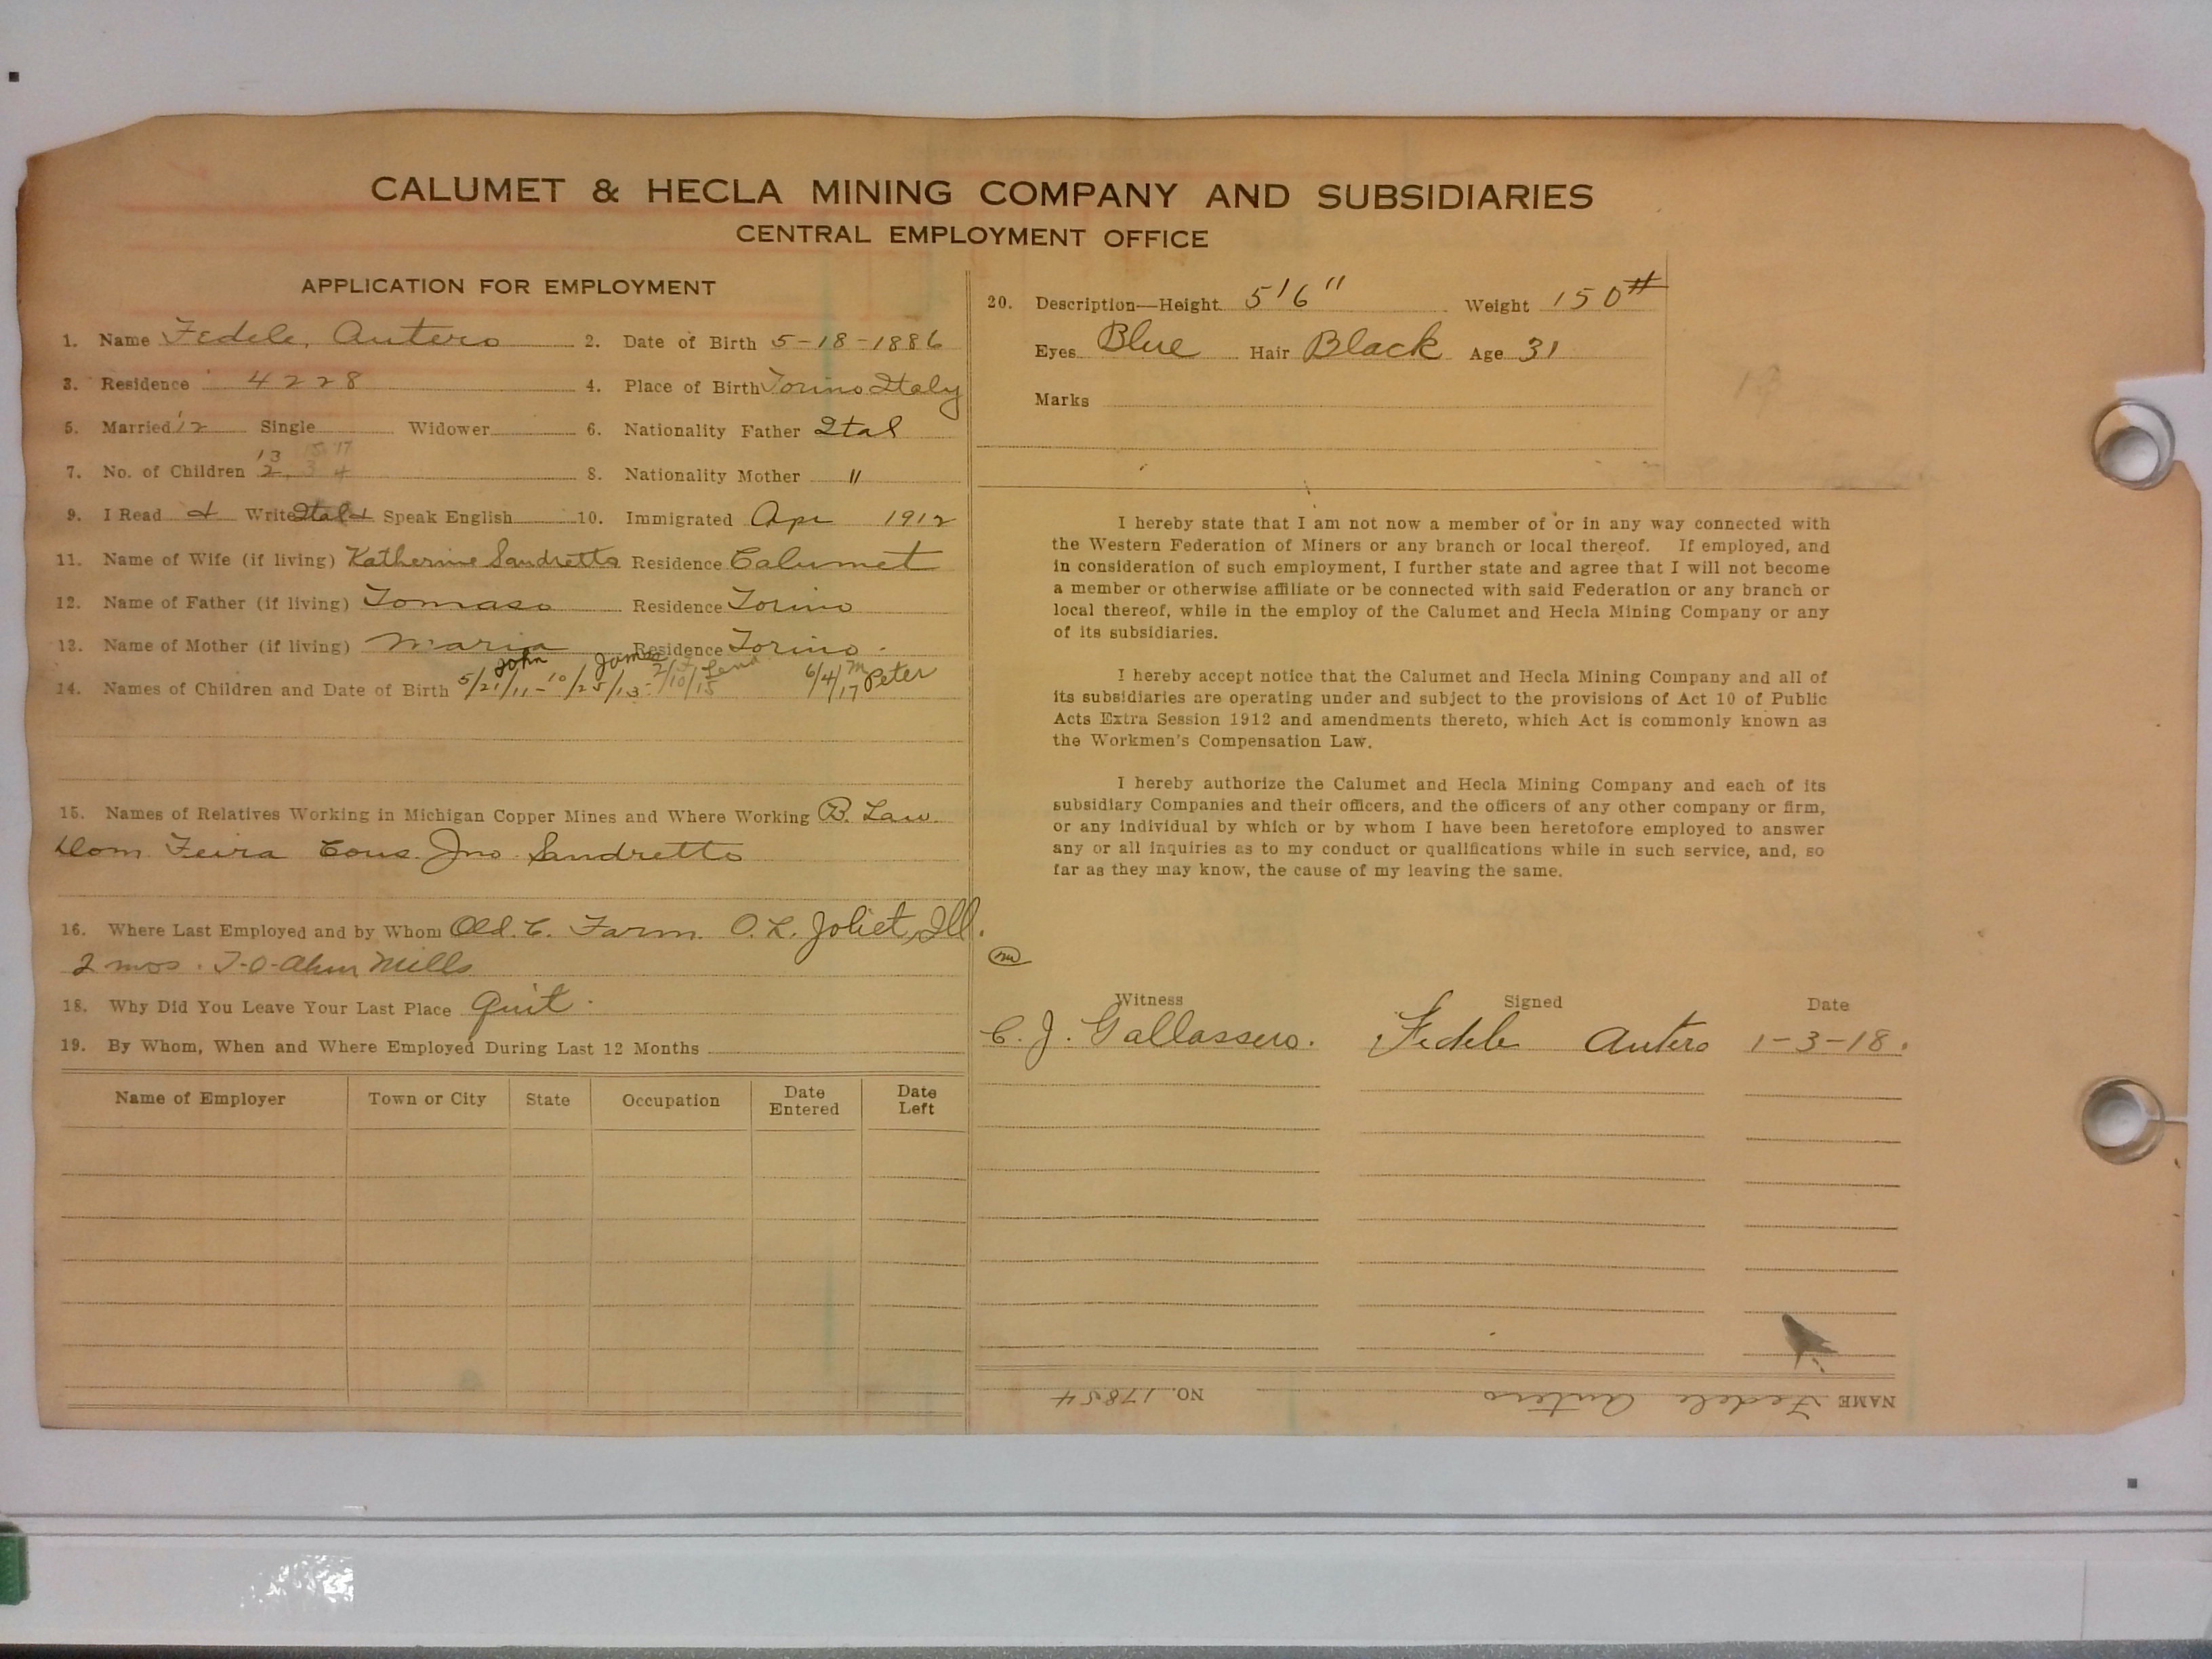 CALUMET & HECLA MINING COMPANY AND SUBSIDIARIES
CENTRAL EMPLOYMENT OFFICE
APPLICATION FOR EMPLOYMENT
1. Name Fedele, Antero 2. Date of Birth 5-18-1886
3. Residence 4228 4. Place of Birth Torino Italy
5. Married '12 Single Widower 6. Nationality Father Ital
13 15 17
7. No. of Children 2 3 4 8. Nationality Mother "
9. I Read & Write Ital & Speak English 10. Immigrated Apr 1912
11. Name of Wife (if living) Katherine Sandretto Residence Calumet
12. Name of Father (if living) Tomaso Residence Torino
13. Name of Mother (if living) Maria Residence Torino.
John James Lena
14. Names of Children and Date of Birth 5/21/11 - 10/25/13 - 2/10/15 6/4/17 M Peter
15. Names of Relatives Working in Michigan Copper Mines and Where Working B. Law.
Dom Feira Cous. Jno. Sandretto
16. Where Last Employed and by Whom Old. C. Farm. O.L. Joliet, Ill.
2 mos. Mills
18. Why Did You Leave Your Last Place Quit.
19. By Whom, When and Where Employed During Last 12 Months
Name of Employer Town or City State Occupation Date Entered Date Left
20. Description—Height 5'6" Weight 150#
Eyes Blue Hair Black Age 31
Marks
I hereby state that I am not now a member of or in any way connected with
the Western Federation of Miners or any branch or local thereof. If employed, and
in consideration of such employment, I further state and agree that I will not become
a member or otherwise affiliate or be connected with said Federation or any branch or
local thereof, while in the employ of the Calumet and Hecla Mining Company or any
of its subsidiaries.
I hereby accept notice that the Calumet and Hecla Mining Company and all of
its subsidiaries are operating under and subject to the provisions of Act 10 of Public
Acts Extra Session 1912 and amendments thereto, which Act is commonly known as
the Workmen's Compensation Law.
I hereby authorize the Calumet and Hecla Mining Company and each of its
subsidiary Companies and their officers, and the officers of any other company or firm,
or any individual by which or by whom I have been heretofore employed to answer
any or all inquiries as to my conduct or qualifications while in such service, and, so
far as they may know, the cause of my leaving the same.
Witness Signed Date
C. J. Gallassero. Fedele Antero 1-3-18.
NAME Fedele Antero NO. 17854